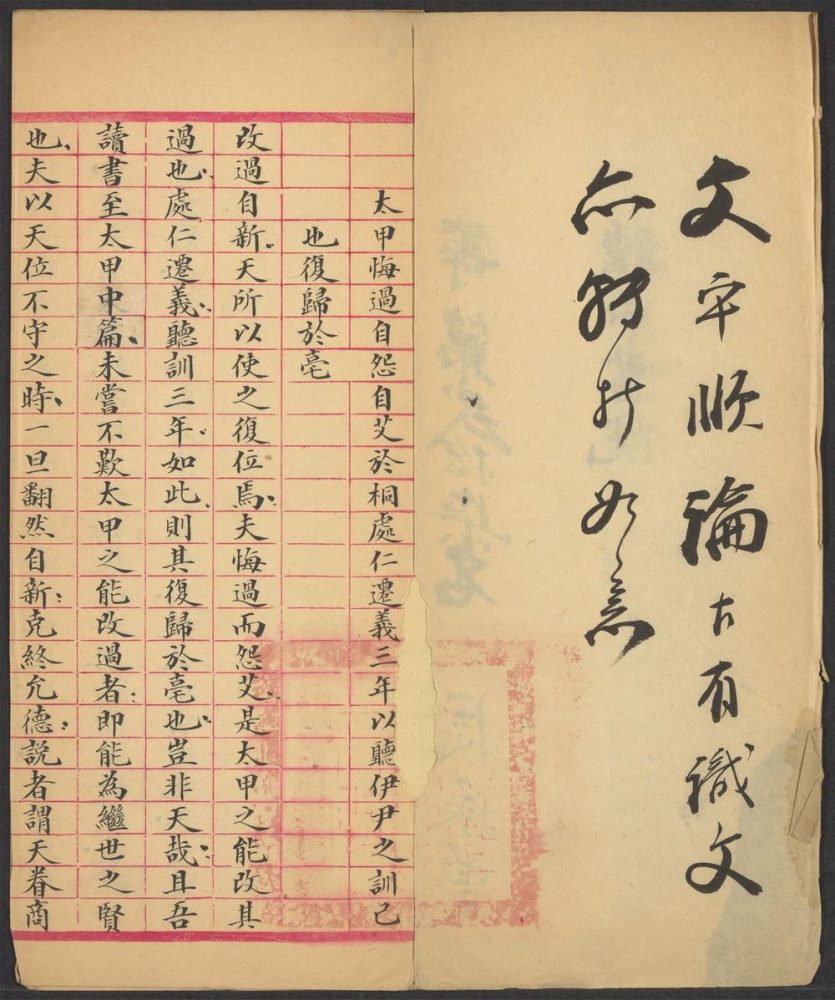 文順論有識文
亦轉折如意
太甲悔過自怨自艾於桐處仁遷義三年以聽伊尹之訓己
也復歸於亳
改過自新天所以使之復位焉夫悔過而怨艾是太甲之能改其
過也處仁遷義聽訓三年如此則其復歸於亳也豈非天哉且吾
讀書至太甲中篇未嘗不歎太甲之能改過者即能為繼世之賢
也夫以天位不守之時一旦翻然自新克終允德說者謂天眷商